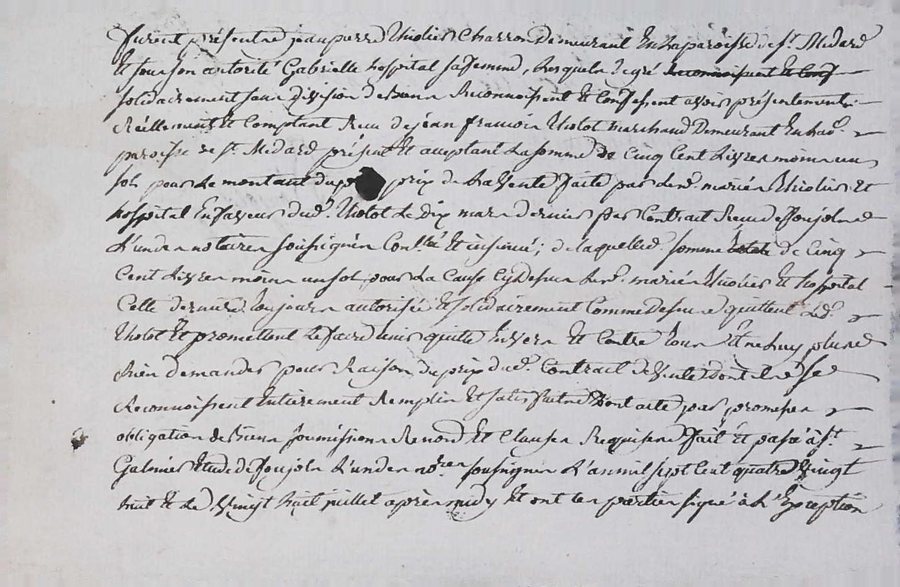 furent présents jean pierre Thiolier Charron Demeurant En la paroisse de st. Médard
Et sous son autorité Gabrielle hospital sa femme, lesquels de gré reconnoissent et conf
solidairement sans division de Biens Reconnoissent Et Confessent avoir présentement
Réellement Et Comptant Recu de jean francois Thiolot marchand Demeurant En lad.
paroisse de st. Médard présent Et acceptant la somme de Cinq Cent Livres moins un
sol pour le montant du prix de la Vente faite par led. mariés Thiolier Et
hospital En faveur dud. Thiolot Le dix mars dernier par Contrat Recu de foujols
L'un des notaires soussignés Conllé Et insinué; de laquelle somme de Cinq
Cent Livres moins un sol pour la Cause Cy dessus led. mariés Thiolier Et hospital
Celle dernière toujours autorisée Et solidairement Comme dessus quittent led.
Thiolot Et promettent le faire tenir quitte Envers Et Contre tous Et ne luy plus
Rien demander pour Raison du prix dud. Contrat de Vente dont ils se
Reconnoissent Entierement Remplis Et satisfaits Dont acte par promesses
obligation de Biens soumissions Renonc. Et Clauses Requises fait Et passé à st.
Galmier Etude de foujols L'un des nores. soussignés L'an mil sept Cent quatre Vingt
huit Et Le Vingt huit juillet après midy Et ont les parties signé à L'Exception